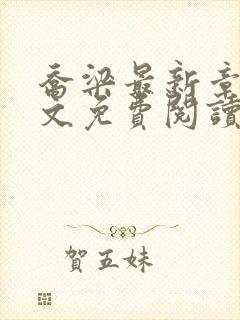 喬梁最新章
文免費閱讀
賀五妹